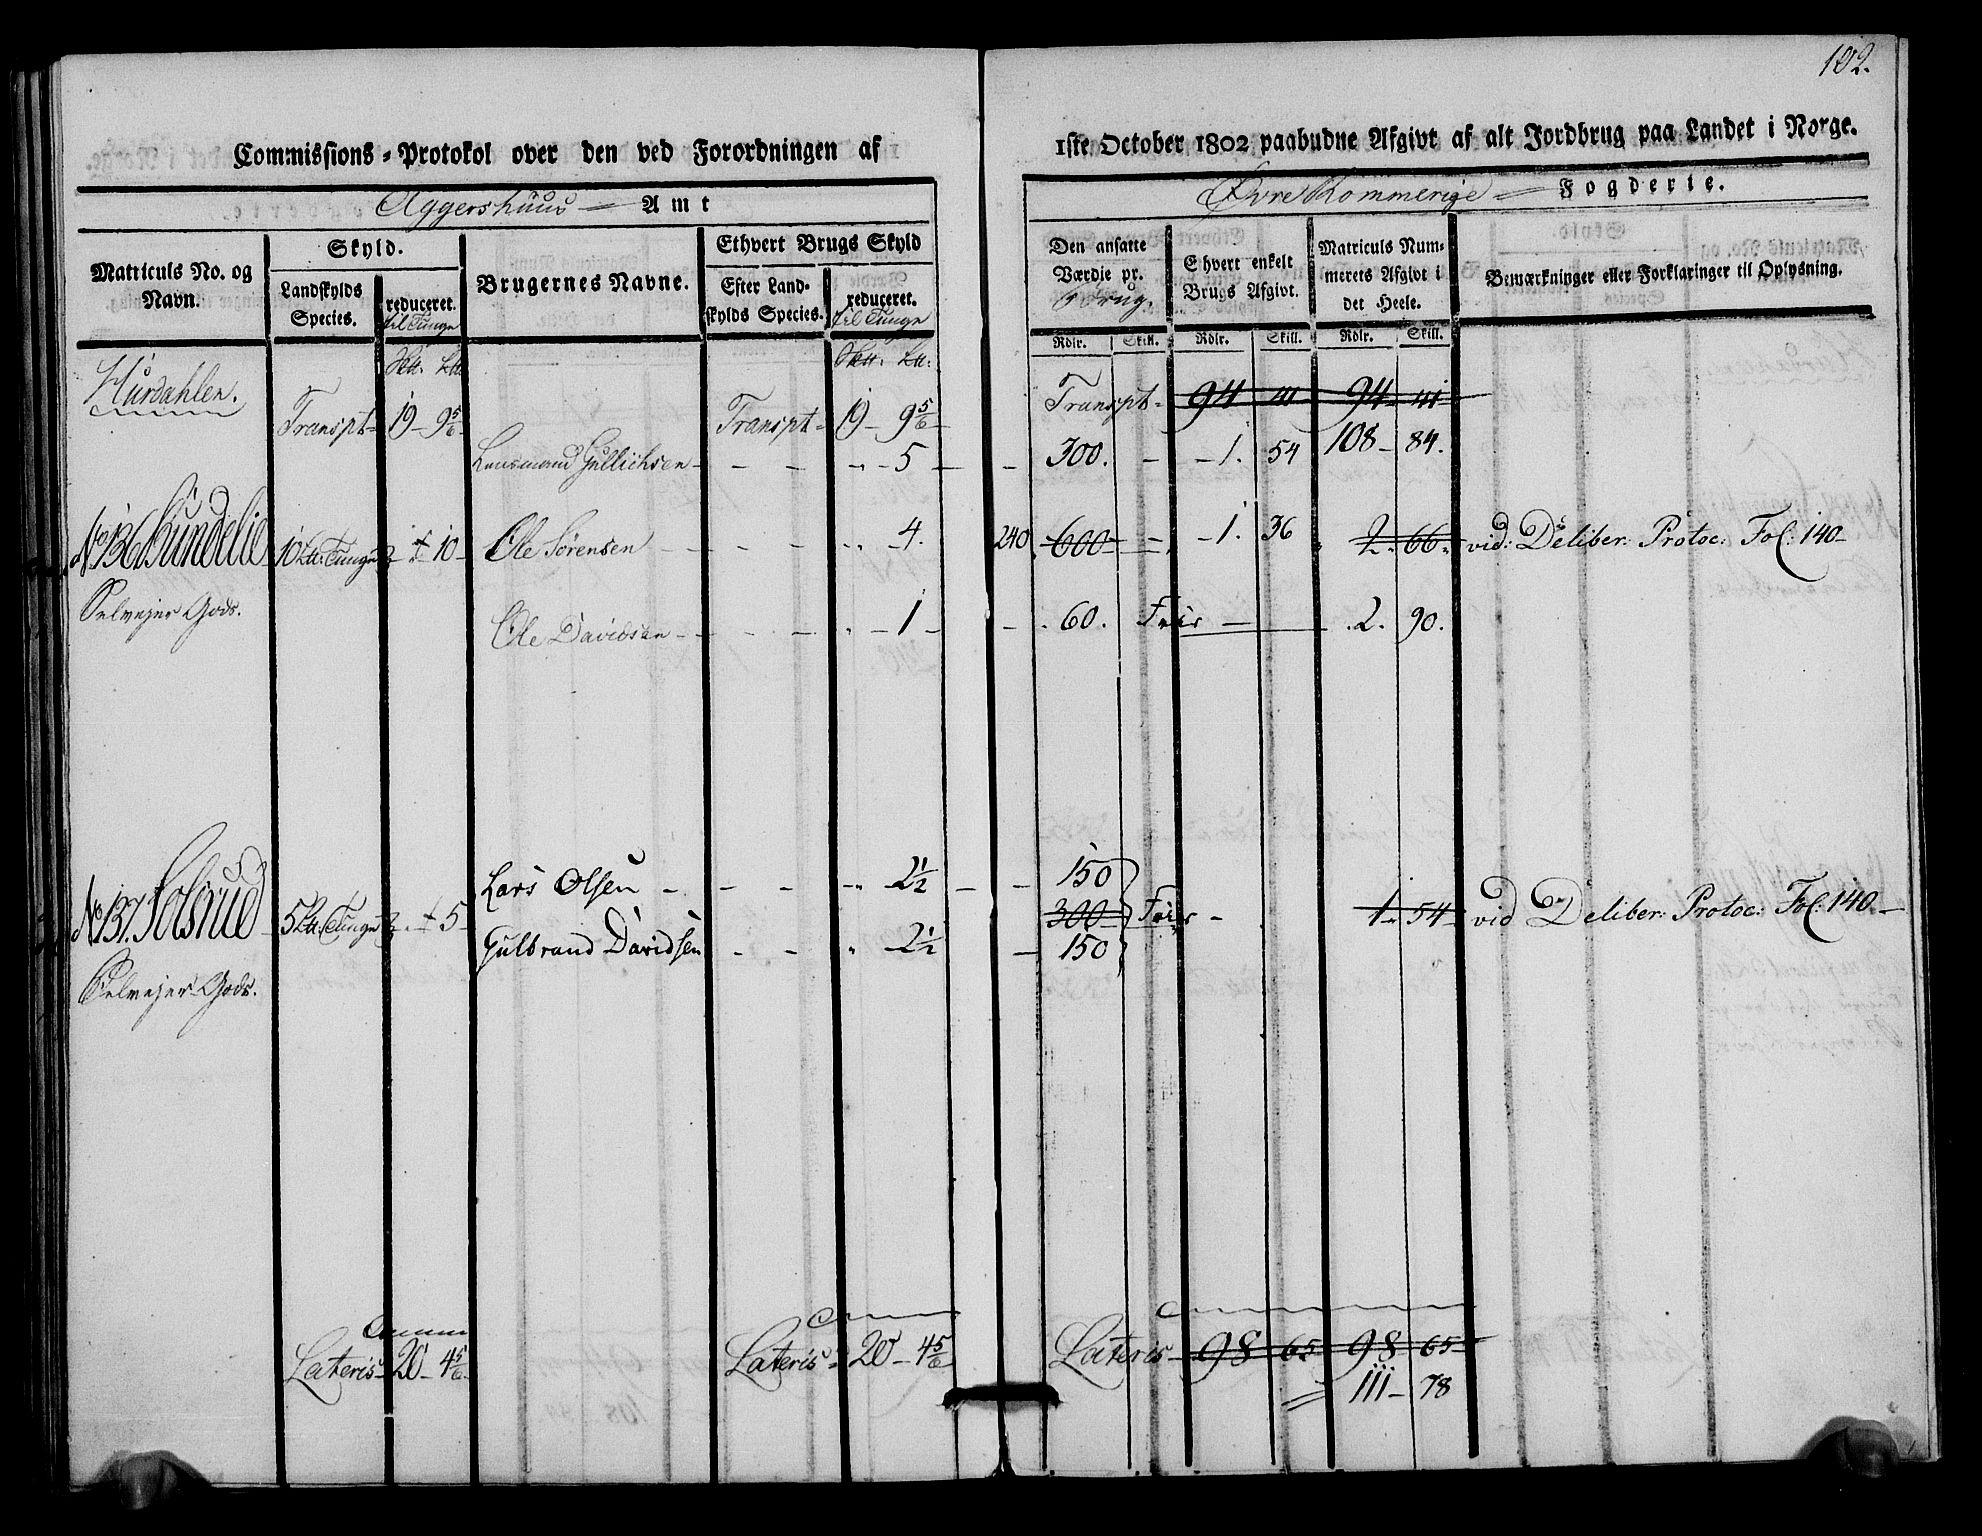 102.
Commissions-Protokol over den ved Forordningen af
1ste October 1802 paabudne Afgivt af alt Jordbrug paa Landet i Norge.
Aggershuus Amt
Øvre Rommerige Fogderie.
Matriculs No. og Navn.
Skyld.
Landskylds Species.
reduceret. til Tunge
Brugernes Navne.
Ethvert Brugs Skyld
Efter Landskylds Species.
reduceret. til Tunge
Den ansatte Værdie pr. Brug.
Ehvert enkelt Brugs Afgivt.
Matriculs Nummerets Afgivt i det Heele.
Bemærkninger eller Forklaringer til Oplysning.
Rdlr. Skill. Rdlr. Skill. Rdlr. Skill.
Hurdahlen.
Transpt 19 - 9 5/6 Transpt 19 - 9 5/6 Transpt 94 41 94 41
108 - 84.
Lensmand Gullichsen - - - 5 - 300. - 1. 54
No 136 Sundelie 10 Lt: Tunge - 10 Ole Sørensen - - - 4. 240 600 - 1. 36 2. 66. vid: Deliber: Protoc: Fol: 140
Selvejer Gods. Ole Davidsen - - - 1 - 60. Frie 2. 90.
Lars Olsen - - - 2 1/2 - 150
No 137. Solsrud 5 Lt: Tunge - 5 300 Frie 1. 54 vid Deliber: Protoc: Fol: 140
Gulbrand Davidsen - - 2 1/2 - 150
Selvejer Gods.
Lateris 20 - 4 5/6 Lateris 20 - 4 5/6 Lateris 98 65 98 65
111 - 78